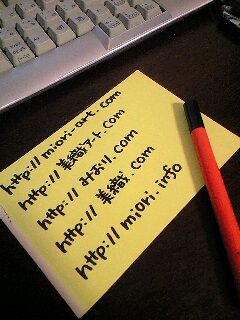 http://miori-art.com
http://美織アート.com
http://みおり.com
http://美織.com
http://miori.info